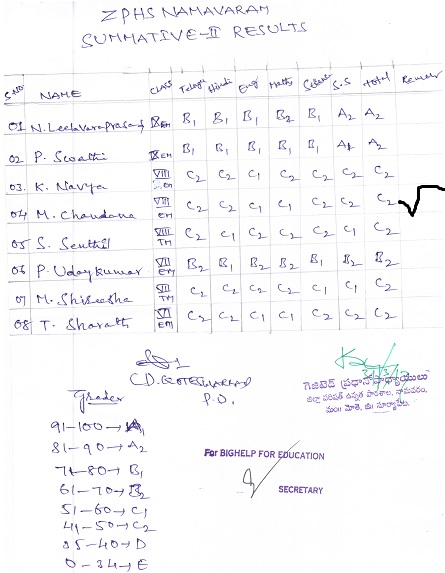 ZPHS NAMAVARAM
SUMMATIVE-II RESULTS
S.NO NAME CLASS Telugu Hindi Eng Maths Science S.S total Remar
01 N. Leelavaraprasad EM B1 B1 B1 B2 B1 A2 A2
02 P. Swathi EM B1 B1 B1 B1 B1 A1 A2
03. K. Navya VIII EM C2 C2 C1 C2 C2 C2 C2
04 M. Chandana VIII EM C2 C2 C1 C1 C2 C2 C2
05 S. Senthil VIII TM C2 C1 C2 C2 C1 C1 C2
06 P. Uday Kumar VII EM B2 B1 B2 B2 B1 B2 B2
07 M. Shireesha VII TM C2 C2 C2 C2 C1 C1 C2
08 T. Sharath VII EM C2 C2 C1 C1 C2 C2 C2
P.D.
గెజిటెడ్ ప్రధానోపాధ్యాయులు
జిల్లా పరిషత్ ఉన్నత పాఠశాల, నామవరం,
మం॥ మోతె, జి॥ సూర్యాపేట.
Grades
91-100→A1
81-90→A2
71-80→B1
61-70→B2
51-60→C1
41-50→C2
35-40→D
0-34→E
For BIGHELP FOR EDUCATION
SECRETARY